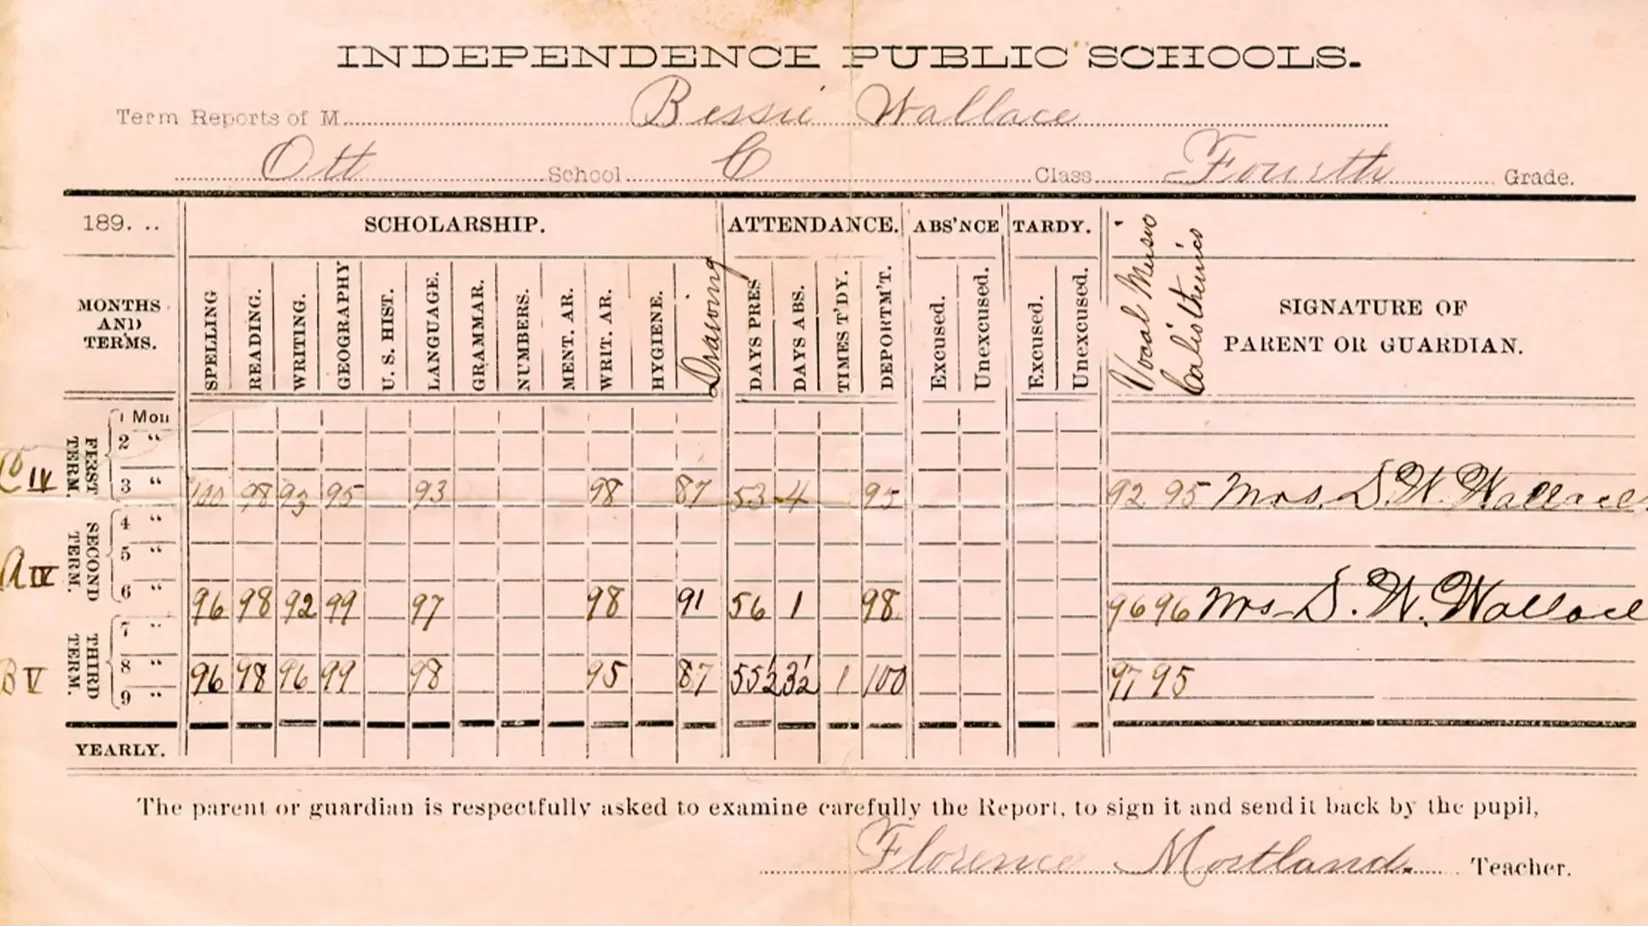 INDEPENDENCE PUBLIC SCHOOLS.
Term Reports of M Bessie Wallace
Ott School C Class Fourth Grade.
189. .. SCHOLARSHIP. ATTENDANCE. ABS'NCE TARDY.
MONTHS AND TERMS. SPELLING READING. WRITING. GEOGRAPHY U. S. HIST. LANGUAGE. GRAMMAR. NUMBERS. MENT. AR. WRIT. AR. HYGIENE. Drawing DAYS PRES DAYS ABS. TIMES T'DY. DEPORTM'T. Excused. Unexcused. Excused. Unexcused. Vocal Music Calisthenics SIGNATURE OF PARENT OR GUARDIAN.
FIRST TERM. 1 Mon
2 "
C IV 3 " 100 98 93 95 93 98 87 53 4 95 92 95 Mrs. D. W. Wallace
SECOND TERM. 4 "
5 "
A IV 6 " 96 98 92 99 97 98 91 56 1 98 96 96 Mrs D. W. Wallace
THIRD TERM. 7 "
B V 8 " 96 98 96 99 98 95 87 55½ 3½ 1 100 97 95
9 "
YEARLY.
The parent or guardian is respectfully asked to examine carefully the Report, to sign it and send it back by the pupil,
Florence Mortland. Teacher.